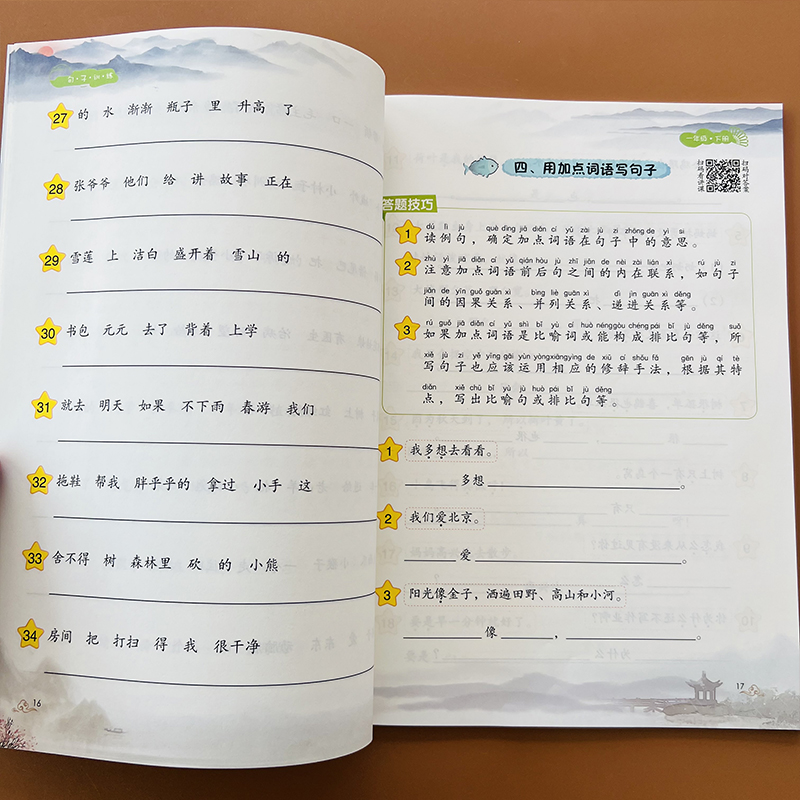 句·子·训·练
27 的 水 渐渐 瓶子 里 升高 了
28 张爷爷 他们 给 讲 故事 正在
29 雪莲 上 洁白 盛开着 雪山 的
30 书包 元元 去了 背着 上学
31 就去 明天 如果 不下雨 春游 我们
32 拖鞋 帮我 胖乎乎的 拿过 小手 这
33 舍不得 树 森林里 砍 的 小熊
34 房间 把 打扫 得 我 很干净
16
一年级·下册
四、用加点词语写句子
扫码看讲课
扫码对答案
答题技巧
dú lì jù què dìng jiā diǎn cí yǔ zài jù zi zhōng de yì si
1 读例句，确定加点词语在句子中的意思。
zhù yì jiā diǎn cí yǔ qián hòu jù zhī jiān de nèi zài lián xì rú jù zi
2 注意加点词语前后句之间的内在联系，如句子
jiān de yīn guǒ guān xì bìng liè guān xì dì jìn guān xì děng
间的因果关系、并列关系、递进关系等。
rú guǒ jiā diǎn cí yǔ shì bǐ yù cí huò néng gòu chéng pái bǐ jù děng suǒ
3 如果加点词语是比喻词或能构成排比句等，所
xiě jù zi yě yīng gāi yùn yòng xiāng yìng de xiū cí shǒu fǎ gēn jù qí tè
写句子也应该运用相应的修辞手法，根据其特
diǎn xiě chū bǐ yù jù huò pái bǐ jù děng
点，写出比喻句或排比句等。
1 我多想去看看。
多想 。
2 我们爱北京。
爱 。
3 阳光像金子，洒遍田野、高山和小河。
像 ， 。
17